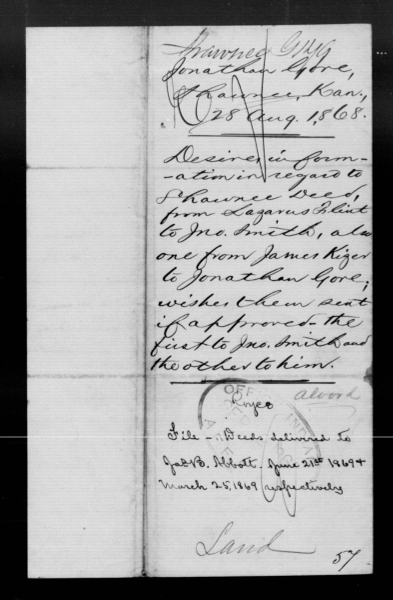 Shawnee
Jonathan Gore,
Shawnee, Kan.,
28 Aug. 1868.
Desires inform-
-ation in regard to
Shawnee Deed,
from Lazarus Flint
to Jno. Smith, also
one from James Kizer
to Jonathan Gore;
wishes them sent
if approved - the
first to Jno. Smith and
the other to him.
alvord
OFF
Royce
File - Deeds delivered to
Jas B. Abbott. June 21st 1869 &
March 25, 1869 respectively
Land
57